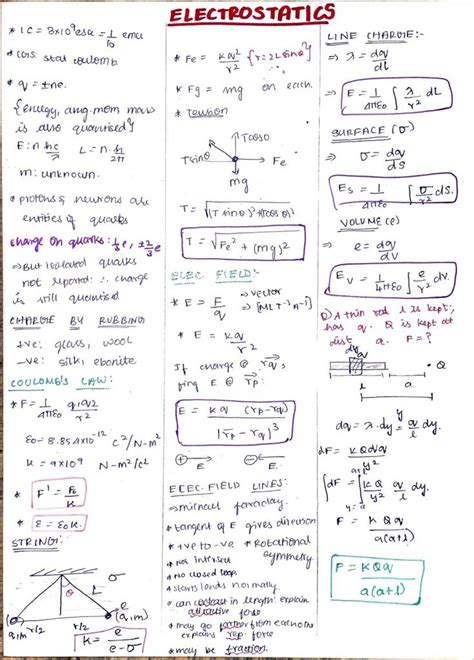 ELECTROSTATICS
* 1C = 3x10⁹esu = 1/10 emu
* cgs: stat coulomb.
* q = ±ne.
{energy, ang. mom, mass
is also quantised}
E: n hc/λ L = n. h/2π
m: unknown.
* protons & neutrons are
entities of quarks
charge on quarks: ±1/3 e, ±2/3 e
⇒ But isolated quarks
not reported ∴ charge
is still quantised
CHARGE BY RUBBING
+ve: glass, wool
-ve: silk, ebonite
COULOMB'S LAW:
* F = 1/4πε₀ q₁q₂/r²
ε₀ = 8.854x10⁻¹² C²/N-m²
k = 9x10⁹ N-m²/C²
* F' = F₀/K
* ε = ε₀K.
STRING:
θ L σ
(q,m) r/2 r/2 (q,m) ρ
K = ρ/(ρ-σ)
* Fe = Kq²/r² {r = 2Lsinθ}
* Fg = mg on each.
* Tension
Tcosθ
Tsinθ Fe
mg
T = √((Tsinθ)² + (Tcosθ)²)
T = √(Fe² + (mg)²)
ELEC. FIELD:-
* E = F/q ⇒ vector
⇒ [MLT⁻³A⁻¹]
* E = Kq/r²
If charge @ r⃗q,
E @ r⃗p:
E = Kq (rp - rq)/|r⃗p - rq|³
+ E - E
ELEC. FIELD LINES:-
⇒ michael faraday.
* tangent of E gives direction
* +ve to -ve * Rotational
symmetry
* Not intersect
* No closed loop
* starts/ands normally
* can contract in length: explain
attractive force
* may go farther from each other
explains rep. force
* may be fraction.
LINE CHARGE:-
⇒ λ = dq/dl
⇒ E = 1/4πε₀ ∫ λ/r² dL
SURFACE (σ)
⇒ σ = dq/ds
Es = 1/4πε₀ ∫ σ/r² ds.
VOLUME (ρ)
⇒ ρ = dq/dv
Ev = 1/4πε₀ ∫ ρ/r² dv.
Q) A thin rod l is kept;
has q. Q is kept at
dist a. F = ?
dy q Q
l a
dq = q/l dy
dF = KQdq/y²
∫dF = ∫ KQ/y² q/l dy.
F = KQq/a(a+l)
F = KQq/a(a+l)